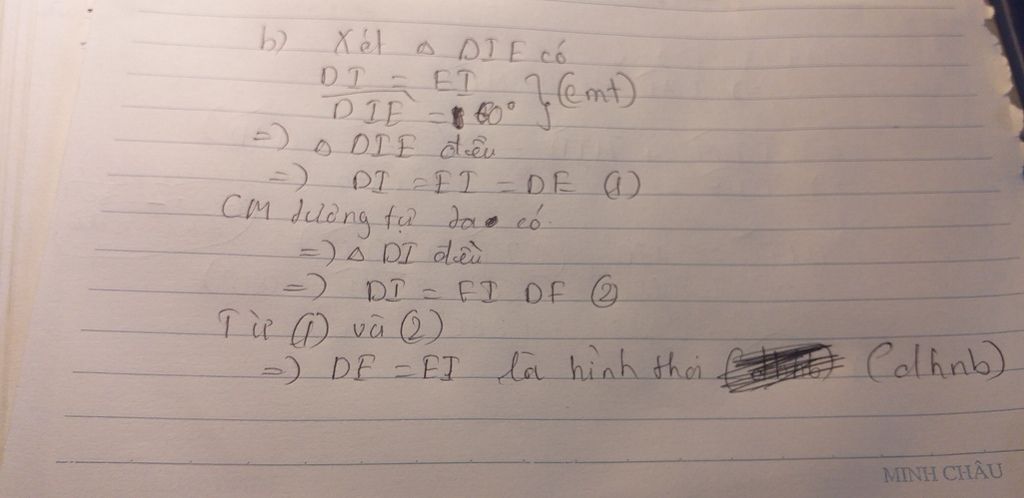 b) Xét △ DIE có
DI = EI
DIE = 60° } (cmt)
=) △ DIE đều
=) DI = EI = DE (1)
CM tương tự ta có
=) △ DI đều
=) DI = FI DF (2)
Từ (1) và (2)
=) DE = EI là hình thoi (dhnb)
MINH CHÂU